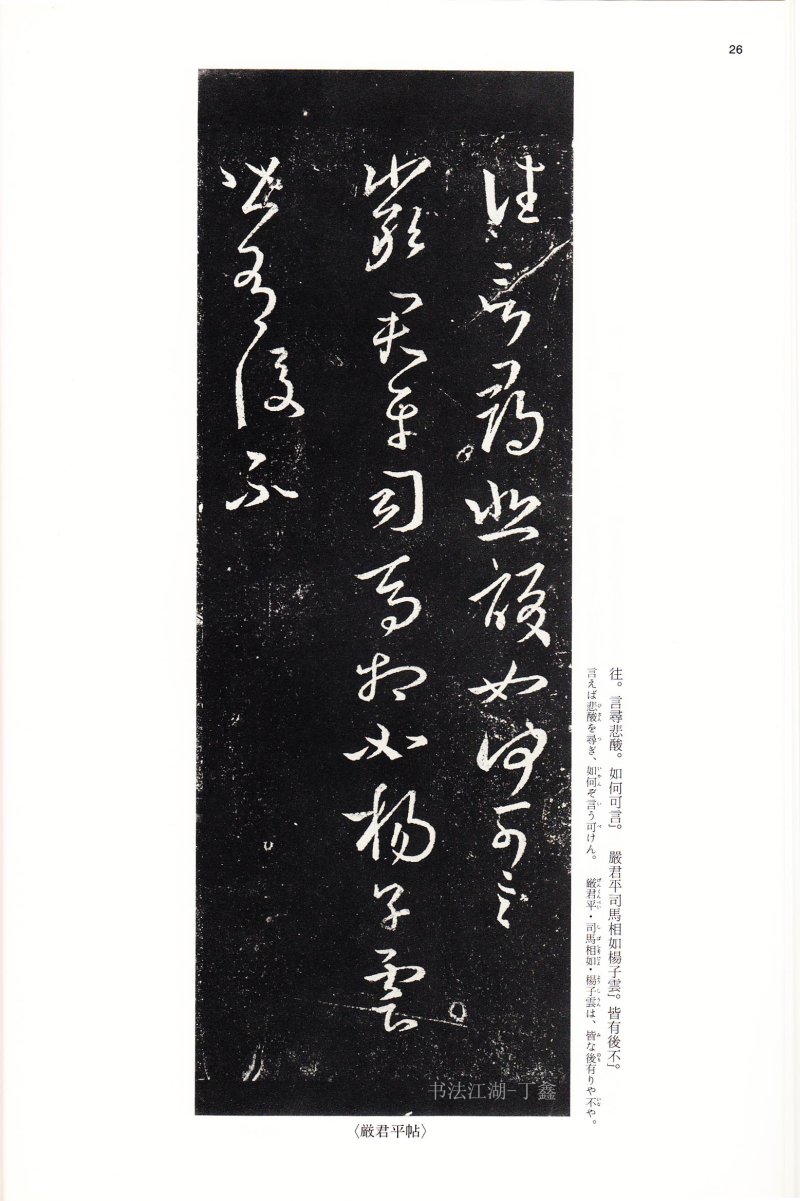 26
往言尋悲酸如何可言
嚴君平司馬相如楊子雲
皆有後不
往。言尋悲酸。如何可言」。　嚴君平司馬相如楊子雲」。皆有後不」。
言えば悲酸を尋ぎ、如何ぞ言う可けん。　厳君平・司馬相如・楊子雲は、皆な後有りや不や。
书法江湖-丁鑫
〈厳君平帖〉